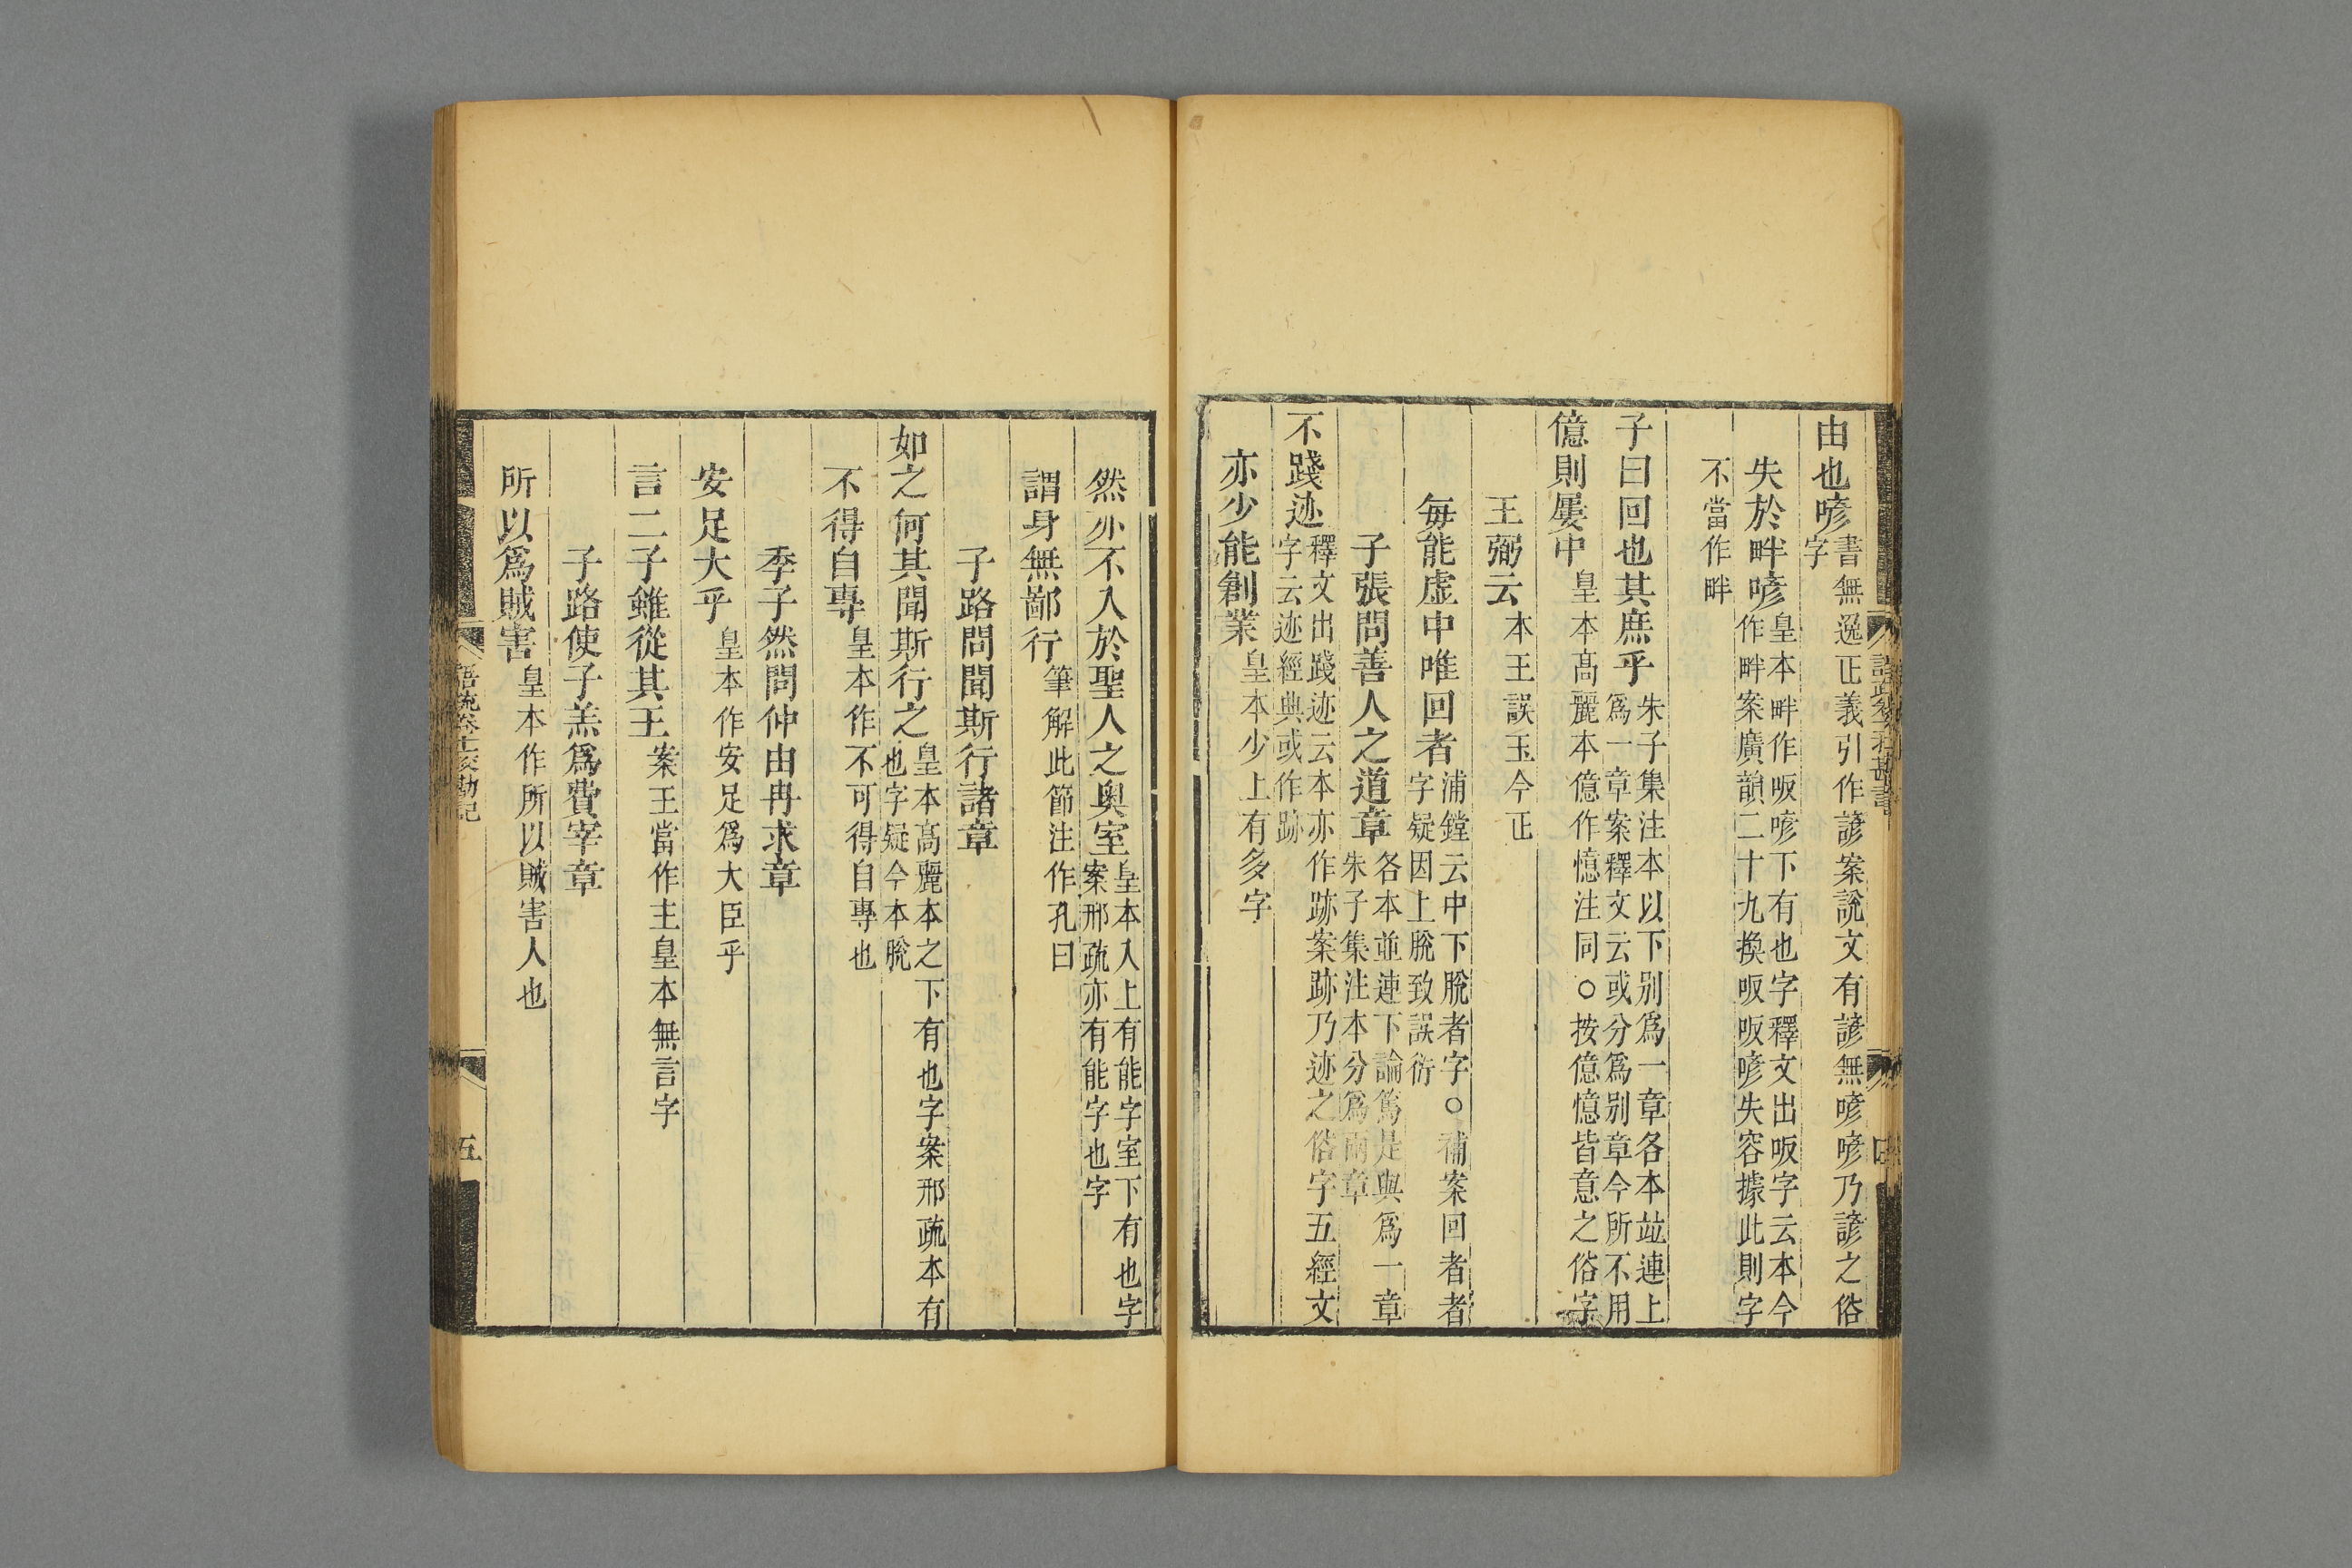 由也喭書無逸正義引作諺案說文有諺無喭喭乃諺之俗字
失於畔喭皇本畔作昄喭下有也字釋文出昄字云本今作畔案廣韻二十九換昄昄喭失容據此則字
不當作畔
子曰回也其庶乎朱子集注本以下別爲一章各本竝連上爲一章案釋文云或分爲別章今所不用
億則屢中皇本高麗本億作憶注同○按億憶皆意之俗字
王弼云本王誤玉今正
每能虛中唯回者浦鏜云中下脫者字○補案回者者字疑因上脫致誤衍
子張問善人之道章各本並連下論篤是與爲一章朱子集注本分爲兩章
不踐迹釋文出踐迹云本亦作跡案跡乃迹之俗字五經文字云迹經典或作跡
亦少能創業皇本少上有多字
然亦不入於聖人之奧室皇本入上有能字室下有也字案邢疏亦有能字也字
謂身無鄙行筆解此節注作孔曰
子路問聞斯行諸章
如之何其聞斯行之皇本高麗本之下有也字案邢疏本有也字疑今本脫
不得自專皇本作不可得自專也
季子然問仲由冉求章
安足大乎皇本作安足爲大臣乎
言二子雖從其王案王當作主皇本無言字
子路使子羔爲費宰章
所以爲賊害皇本作所以賊害人也
語疏卷十一校勘記
五